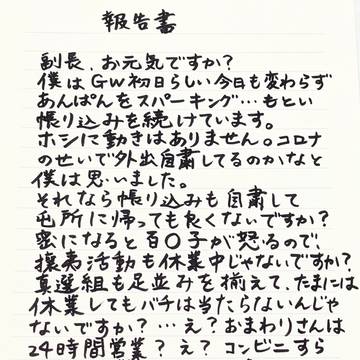 報告書
副長、お元気ですか?
僕はGW初日らしい今日も変わらず
あんぱんをスパーキング…もとい
張り込みを続けています。
ホシに動きはありません。コロナ
のせいで外出自粛してるのかなと
僕は思いました。
それなら張り込みも自粛して
屯所に帰っても良くないですか?
密になると百〇子が怒るので、
攘夷活動も休業中じゃないですか?
真選組も足並みを揃えて、たまには
休業してもバチは当たらないんじゃ
ないですか?…え?おまわりさんは
24時間営業?え?コンビニすら